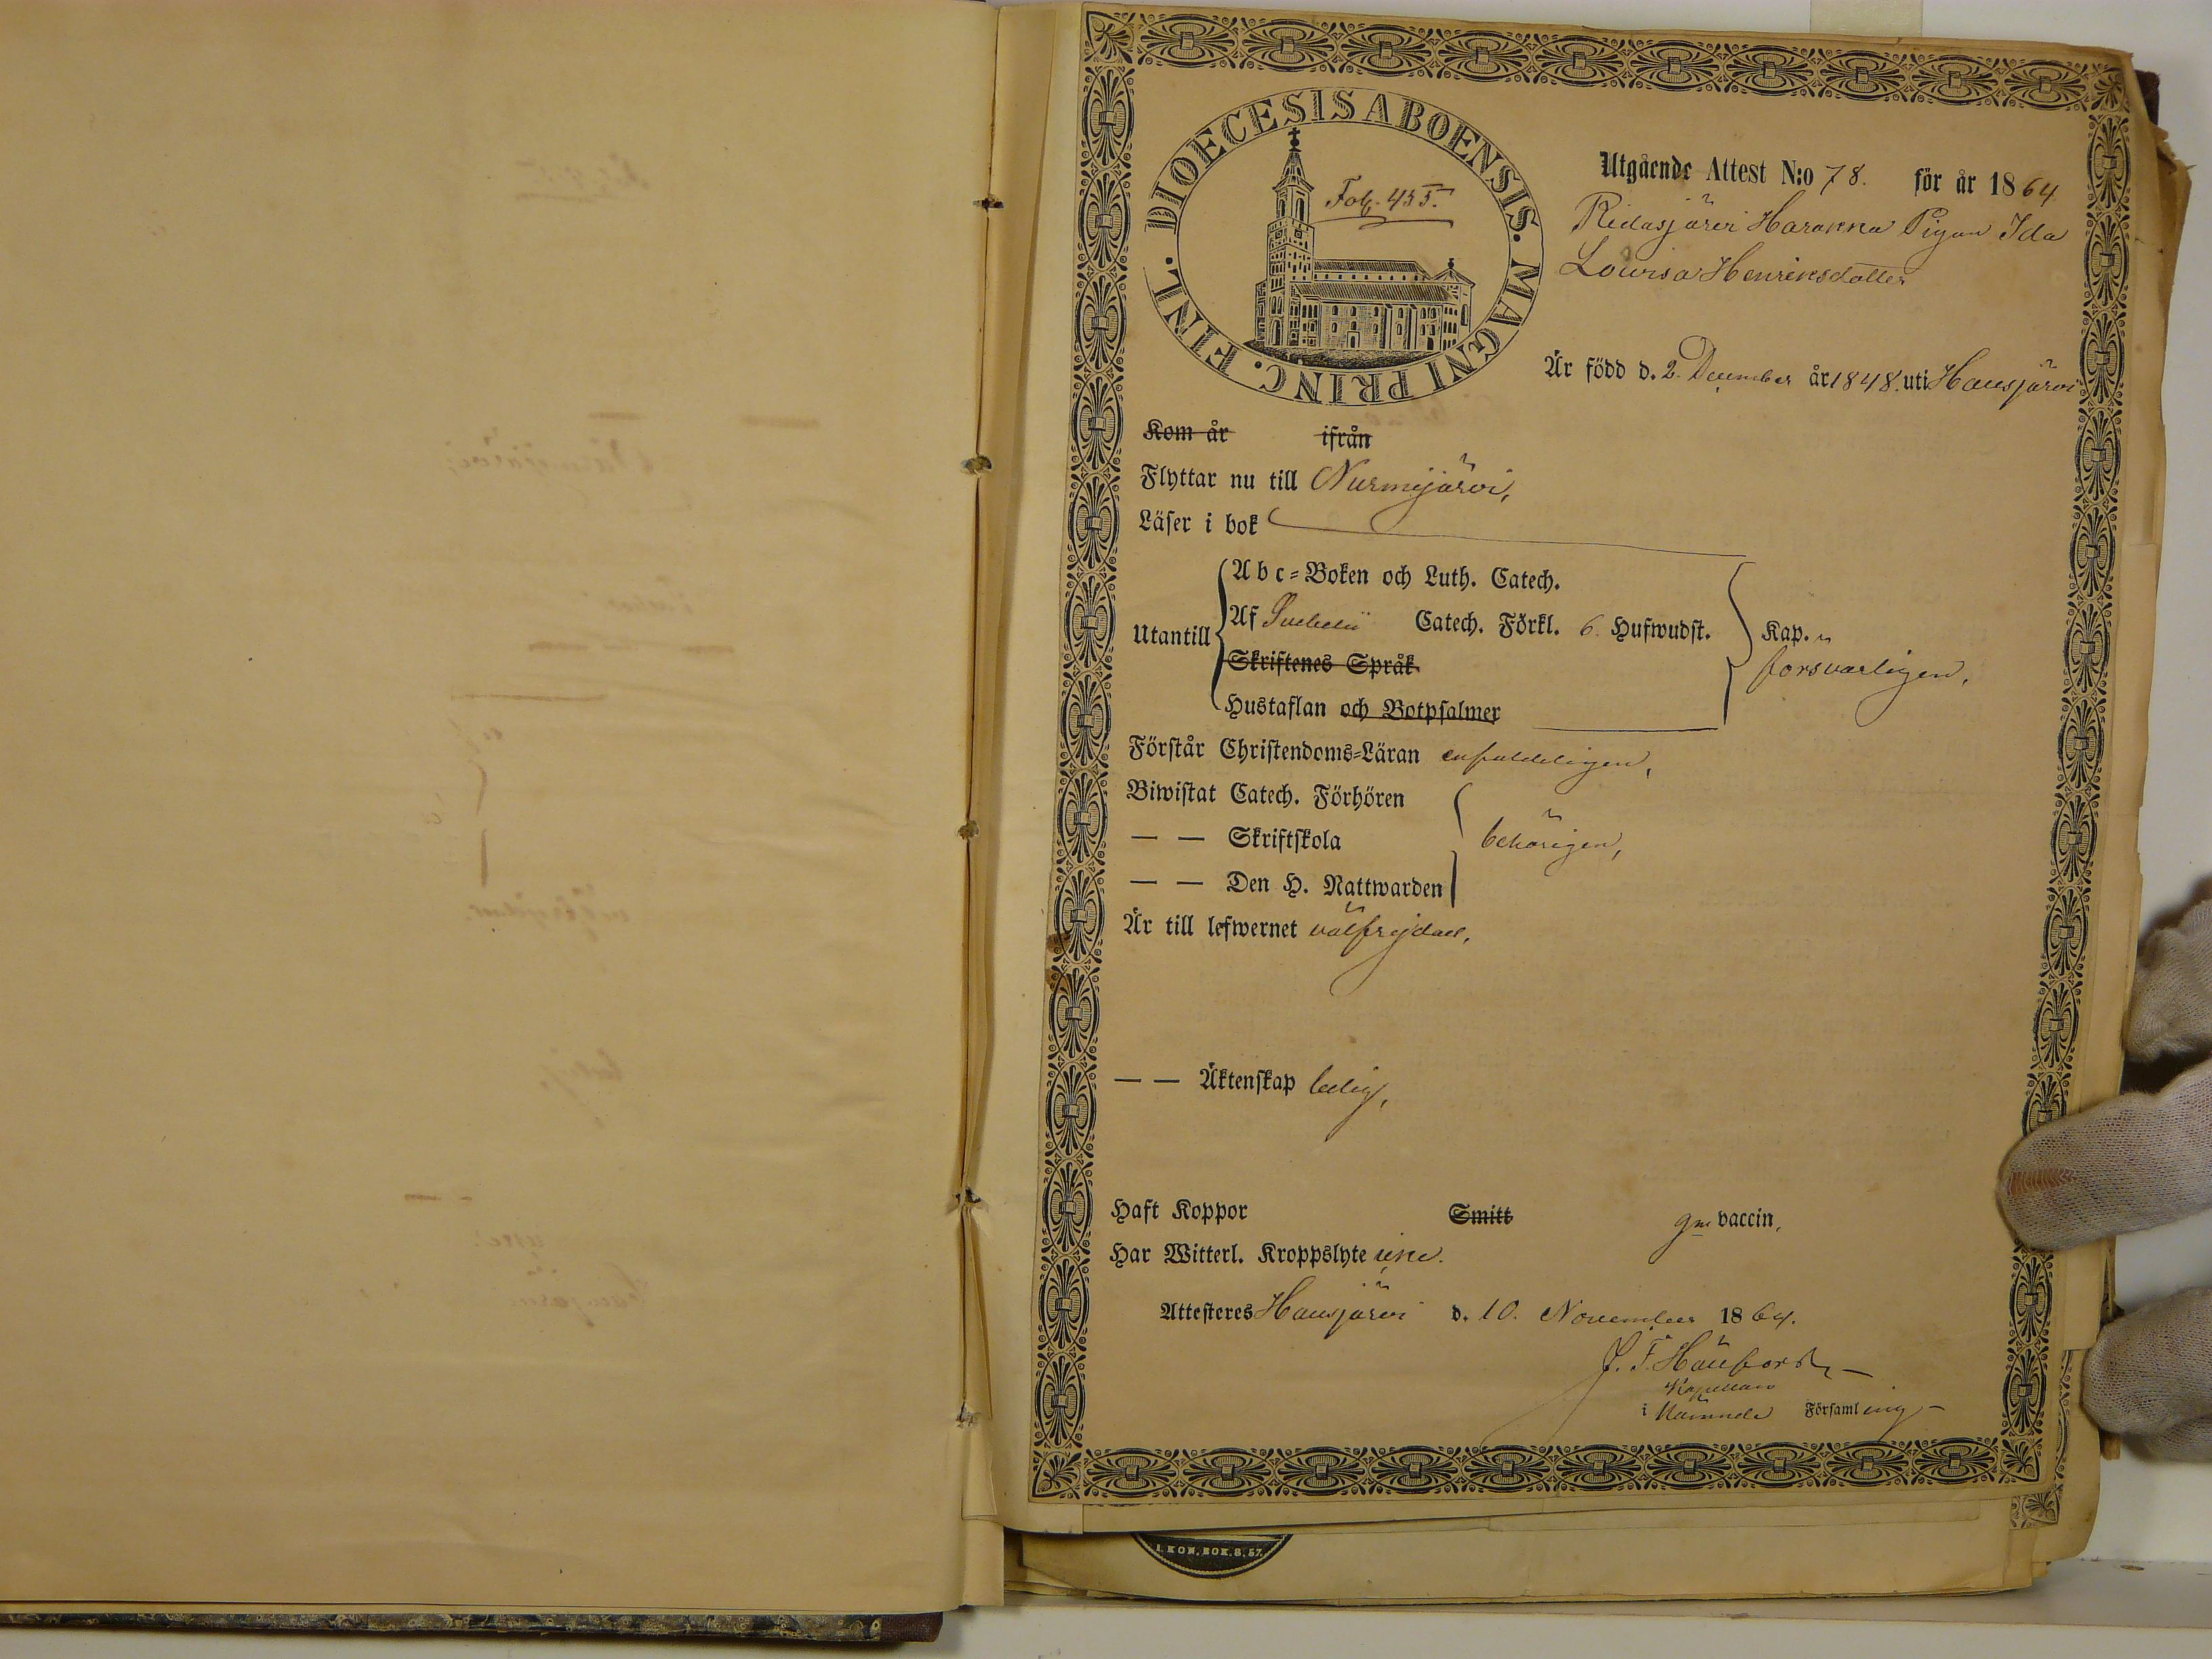 DIOECESIS ABOENSIS. MAGNI PRINC. FINL.
Fol. 455.
Utgående Attest N:o 78. för år 1864
Ridasjärvi Harakka Pigan Ida
Lovisa Henriksdotter
Är född d. 2 December år 1848. uti Hausjärvi
Kom år ifrån
Flyttar nu till Nurmijärvi,
Läser i bok
Abc=Boken och Luth. Catech.
Utantill Af Svebelii Catech. Förkl. 6 Hufwudst. Kap.
Skriftenes Språk försvarligen,
Hustaflan och Botpsalmer
Förstår Christendoms=Läran enfaldeligen,
Biwistat Catech. Förhören
— — Skriftskola behörigen,
— — Den H. Nattwarden
Är till lefwernet välfrejdad,
— — Äktenskap ledig,
Haft Koppor Smitt gm vaccin,
Har Witterl. Kroppslyte icke.
Attesteres Hausjärvi d. 10. November 1864.
Kapellan
i Nämnde Församling
I. KON. BOK. 8, 57.